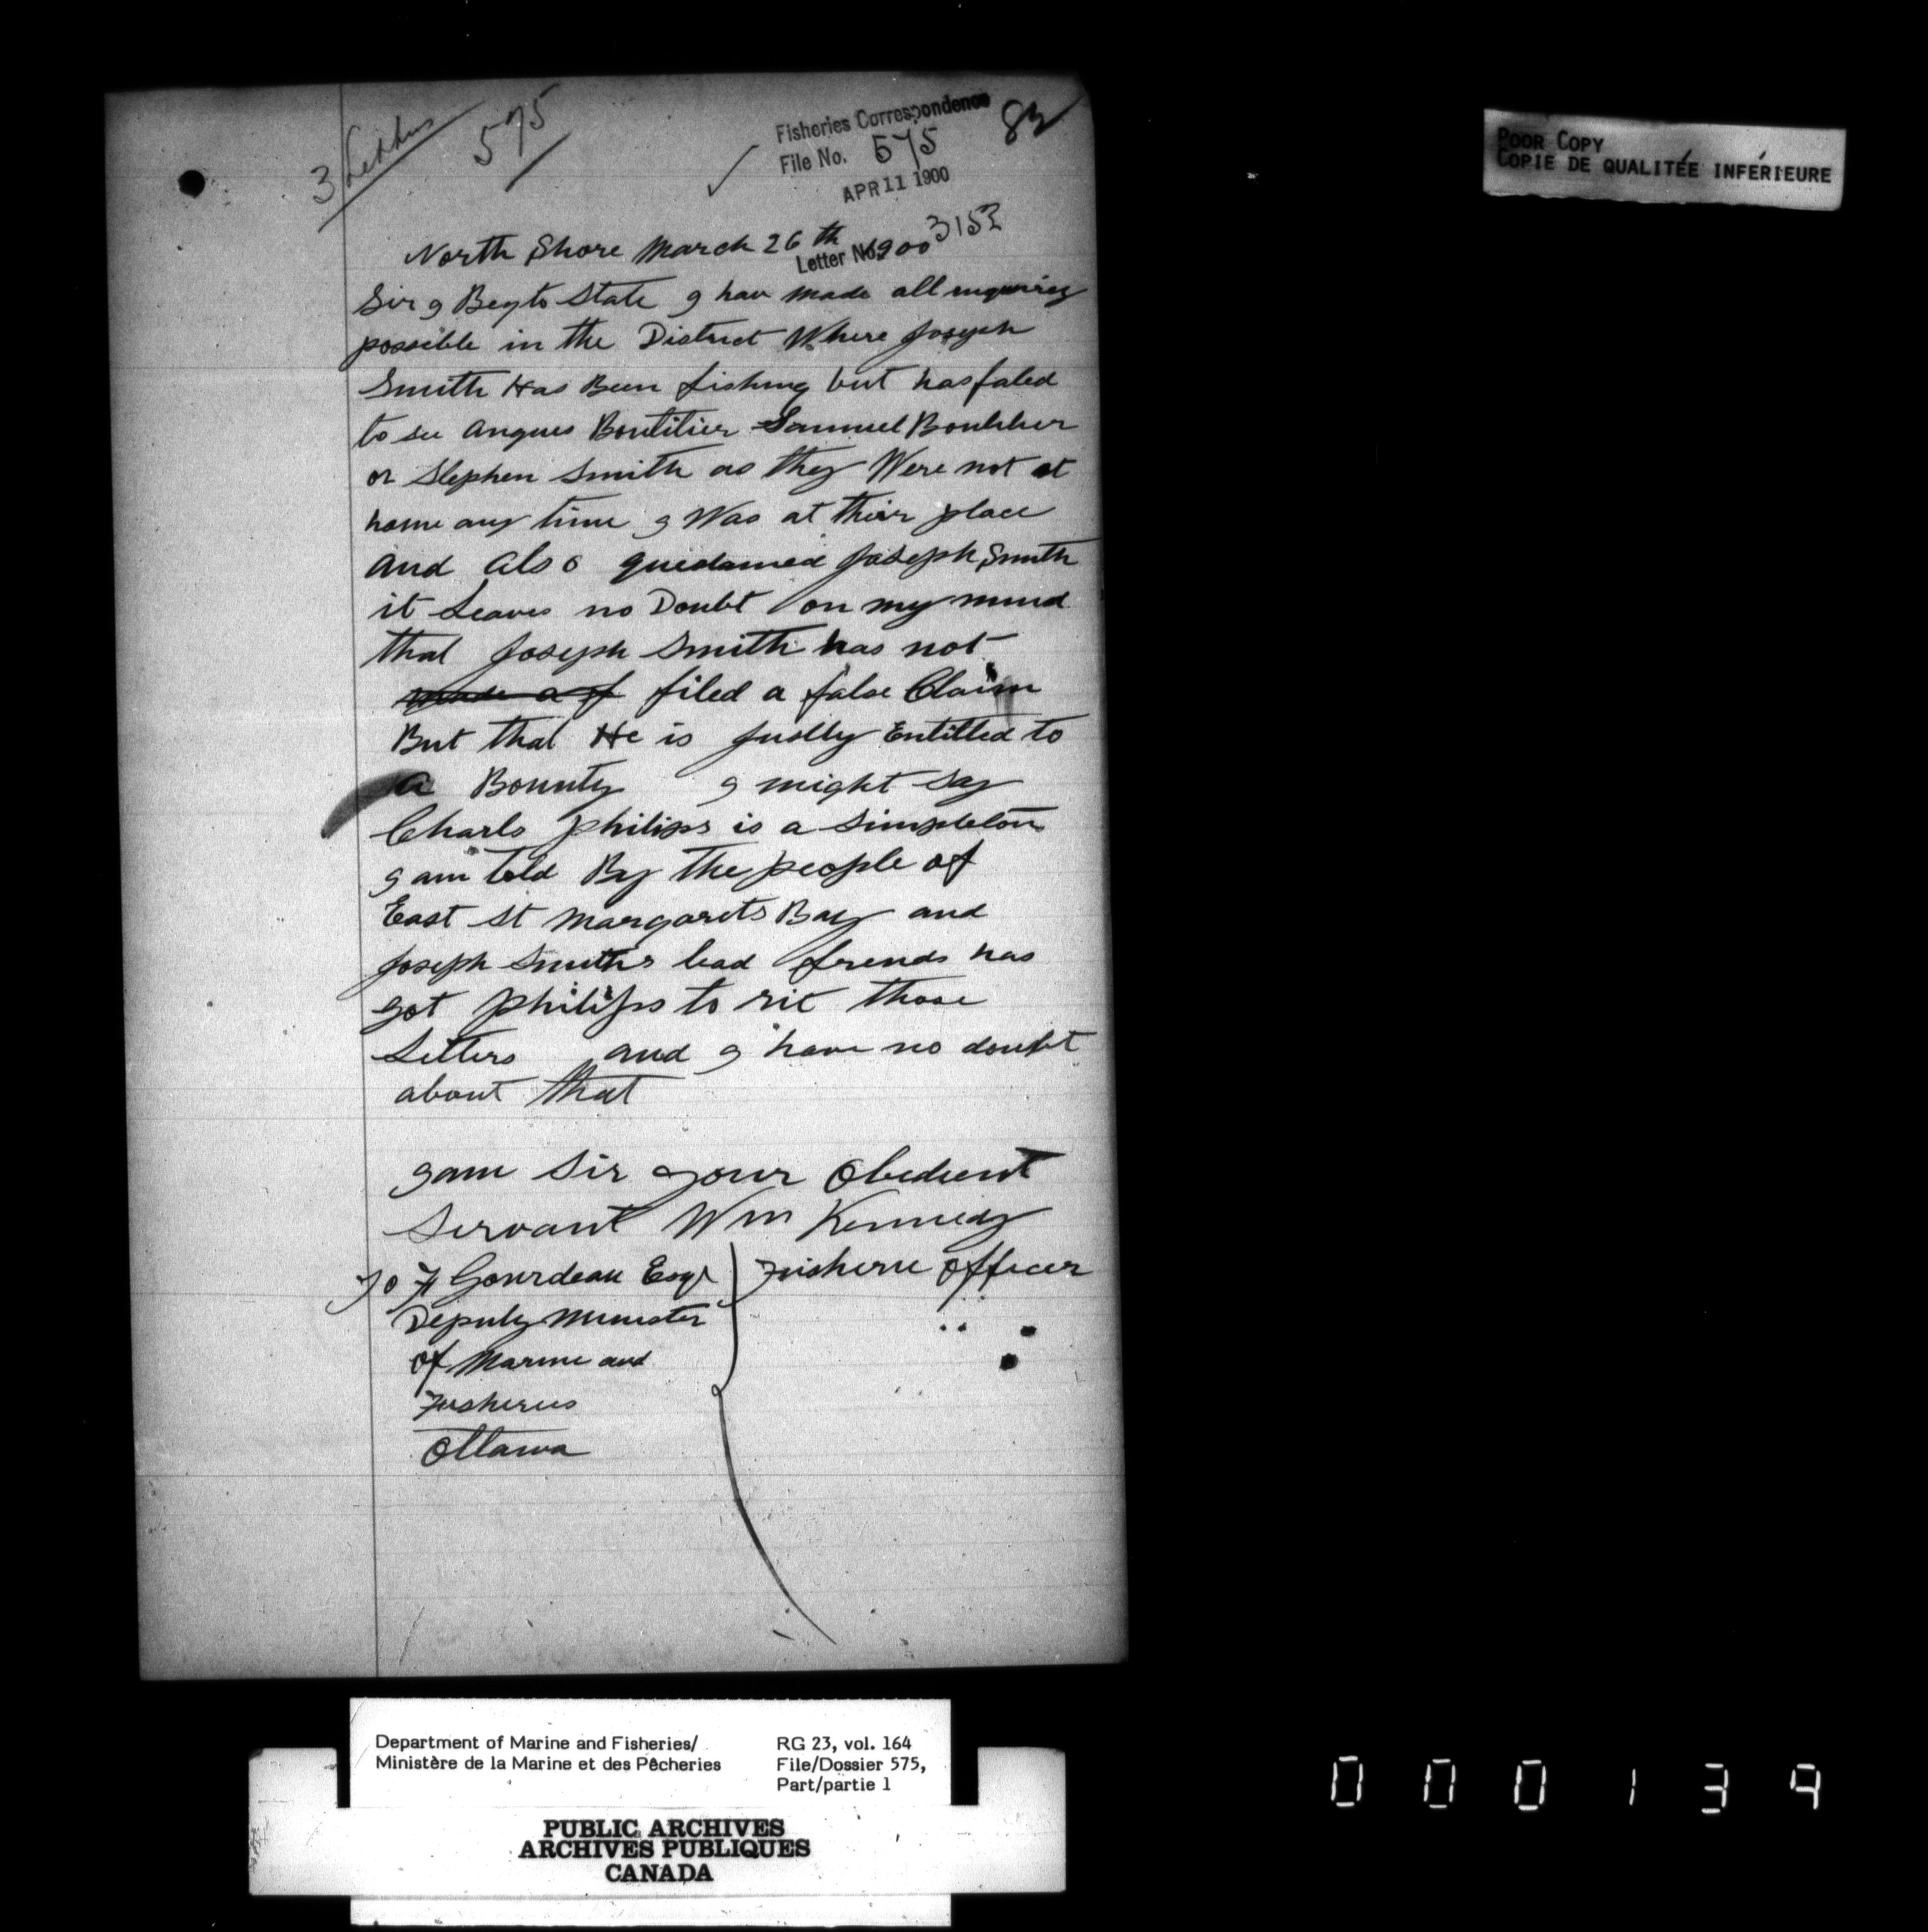 3 Letters
575
Fisheries Correspondence
File No. 575
APR 11 1900
Letter No. 3153
83
POOR COPY
COPIE DE QUALITÉE INFÉRIEURE
North Shore March 26th 1900
Sir I Beg to State I hav made all inquiries
possible in the District Where Joseph
Smith Has Been fishing but has faled
to see Angues Boutilier Samuel Boutilier
or Stephen Smith as they Were not at
home any time I Was at their place
and also Joseph Smith
it Leaves no Doubt on my mind
that Joseph Smith has not
made a f filed a false Claim
But that He is justly Entitled to
a Bounty I might say
Charls philips is a simpleton
I am told By the people of
East St Margarets Bay and
Joseph Smiths bad frends has
got philips to rit those
Letters and I have no doubt
about that
I am Sir your Obedient
Servant Wm Kennedy
Fisherie Officer
To F Gourdeau Esqr
Deputy Minister
of Marine and
Fisheries
Ottawa
Department of Marine and Fisheries/
Ministère de la Marine et des Pêcheries
RG 23, vol. 164
File/Dossier 575,
Part/partie 1
PUBLIC ARCHIVES
ARCHIVES PUBLIQUES
CANADA
000139